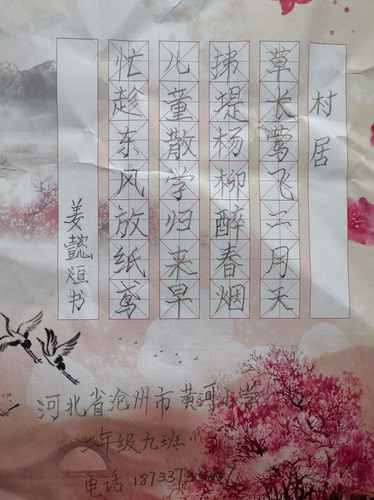 村居
草长莺飞二月天
拂堤杨柳醉春烟
儿童散学归来早
忙趁东风放纸鸢
姜懿烜书
河北省沧州市黄河小学
年级九班
电话